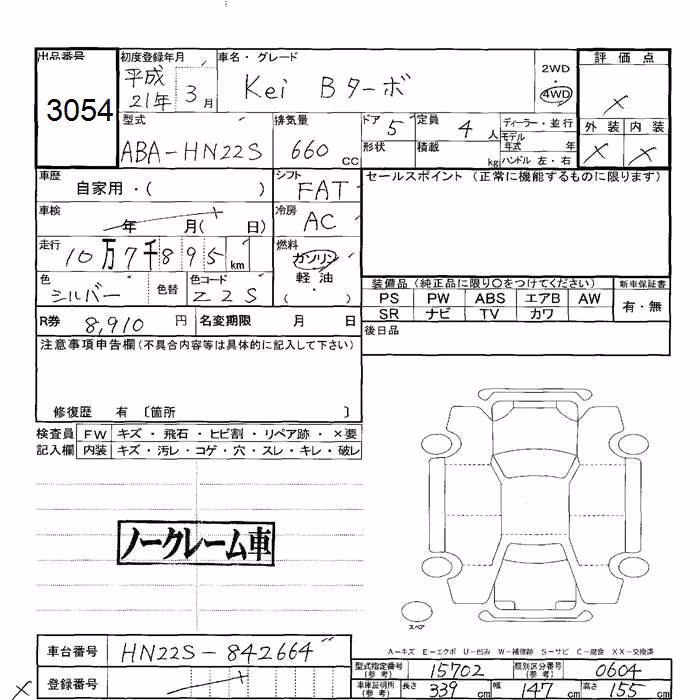 出品番号
3054
初度登録年月
平成
21年 3月
車名・グレード
Kei Bターボ
2WD
・
4WD
評価点
×
外装 内装
× ×
型式
ABA-HN22S
排気量
660 cc
ドア 5
定員 4 人
形状
積載 kg
ディーラー・並行
モデル
年式 年
ハンドル 左・右
車歴
自家用・( )
シフト
FAT
セールスポイント (正常に機能するものに限ります)
車検
年 月( 日)
冷房
AC
走行
10万7千895 km
燃料
ガソリン
軽油
( ・ )
色
シルバー
色替
色コード
Z2S
装備品 (純正品に限り○をつけてください)
新車保証書
PS PW ABS エアB AW
有・無
SR ナビ TV カワ
R券 8,910 円
名変期限 月 日
後日品
注意事項申告欄 (不具合内容等は具体的に記入して下さい)
修復歴 有 〔箇所 〕
検査員
記入欄
FW キズ・飛石・ヒビ割・リペア跡・×要
内装 キズ・汚レ・コゲ・穴・スレ・キレ・破レ
ノークレーム車
スペア
A-キズ E-エクボ U-凹み W-補修跡 S-サビ C-腐食 XX-交換済
車台番号
HN22S-842664〃
登録番号
×
型式指定番号
(参考)
15702
類別区分番号
(参考)
0604
車庫証明用
(参考)
長さ 339 cm
幅 147 cm
高さ 155 cm